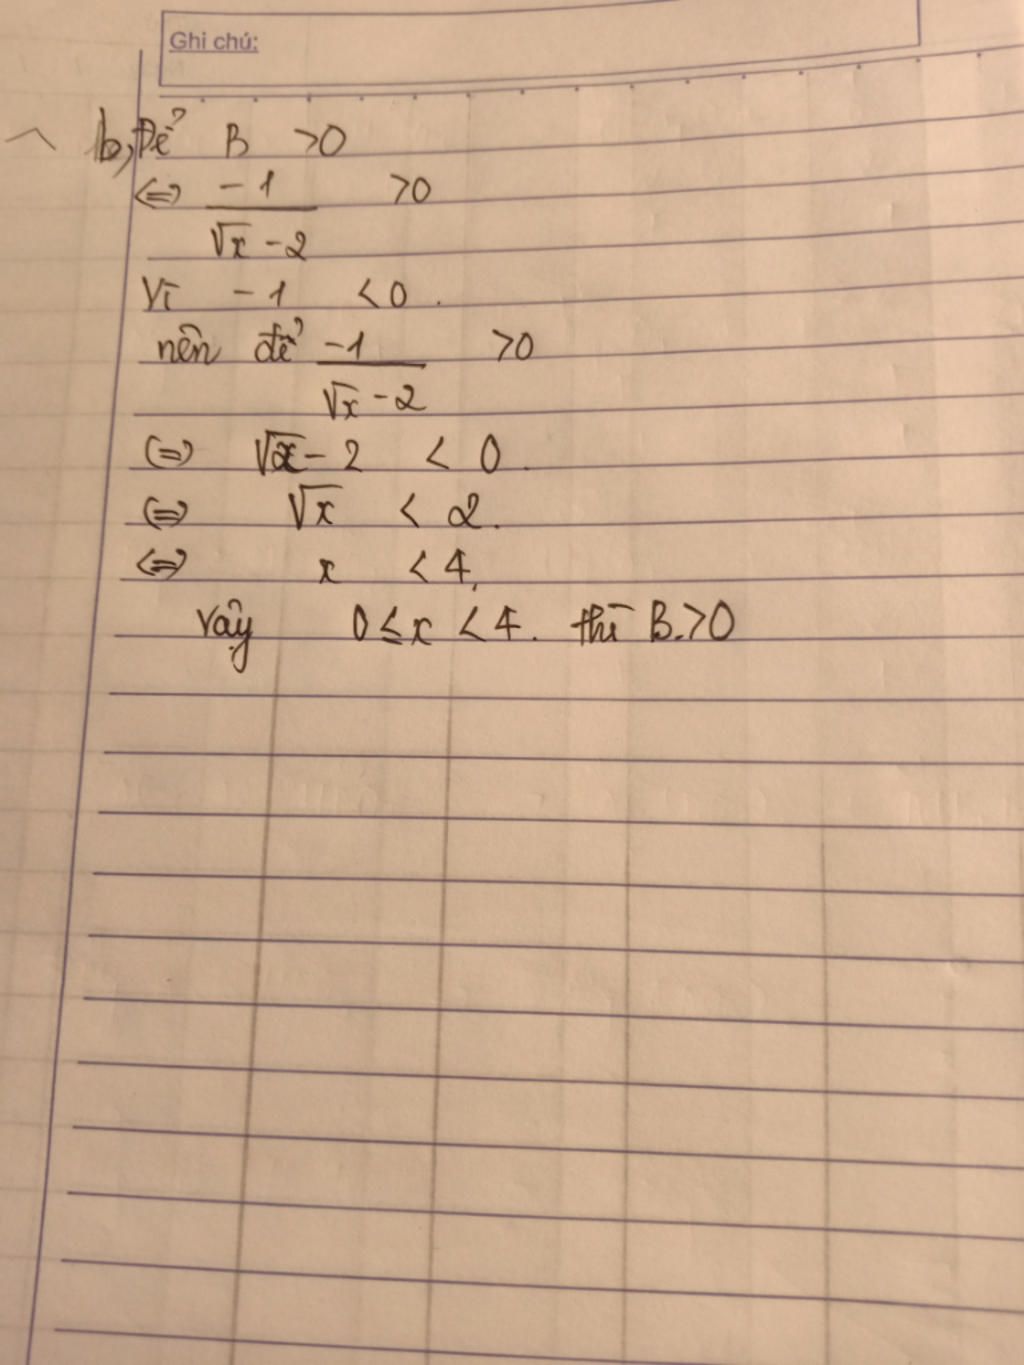 Ghi chú:
b, Để B >0
<=> -1/(√x - 2) >0
Vì -1 <0.
nên để -1/(√x - 2) >0
<=> √x - 2 < 0.
<=> √x < 2.
<=> x < 4.
Vậy 0≤x <4. thì B.>0